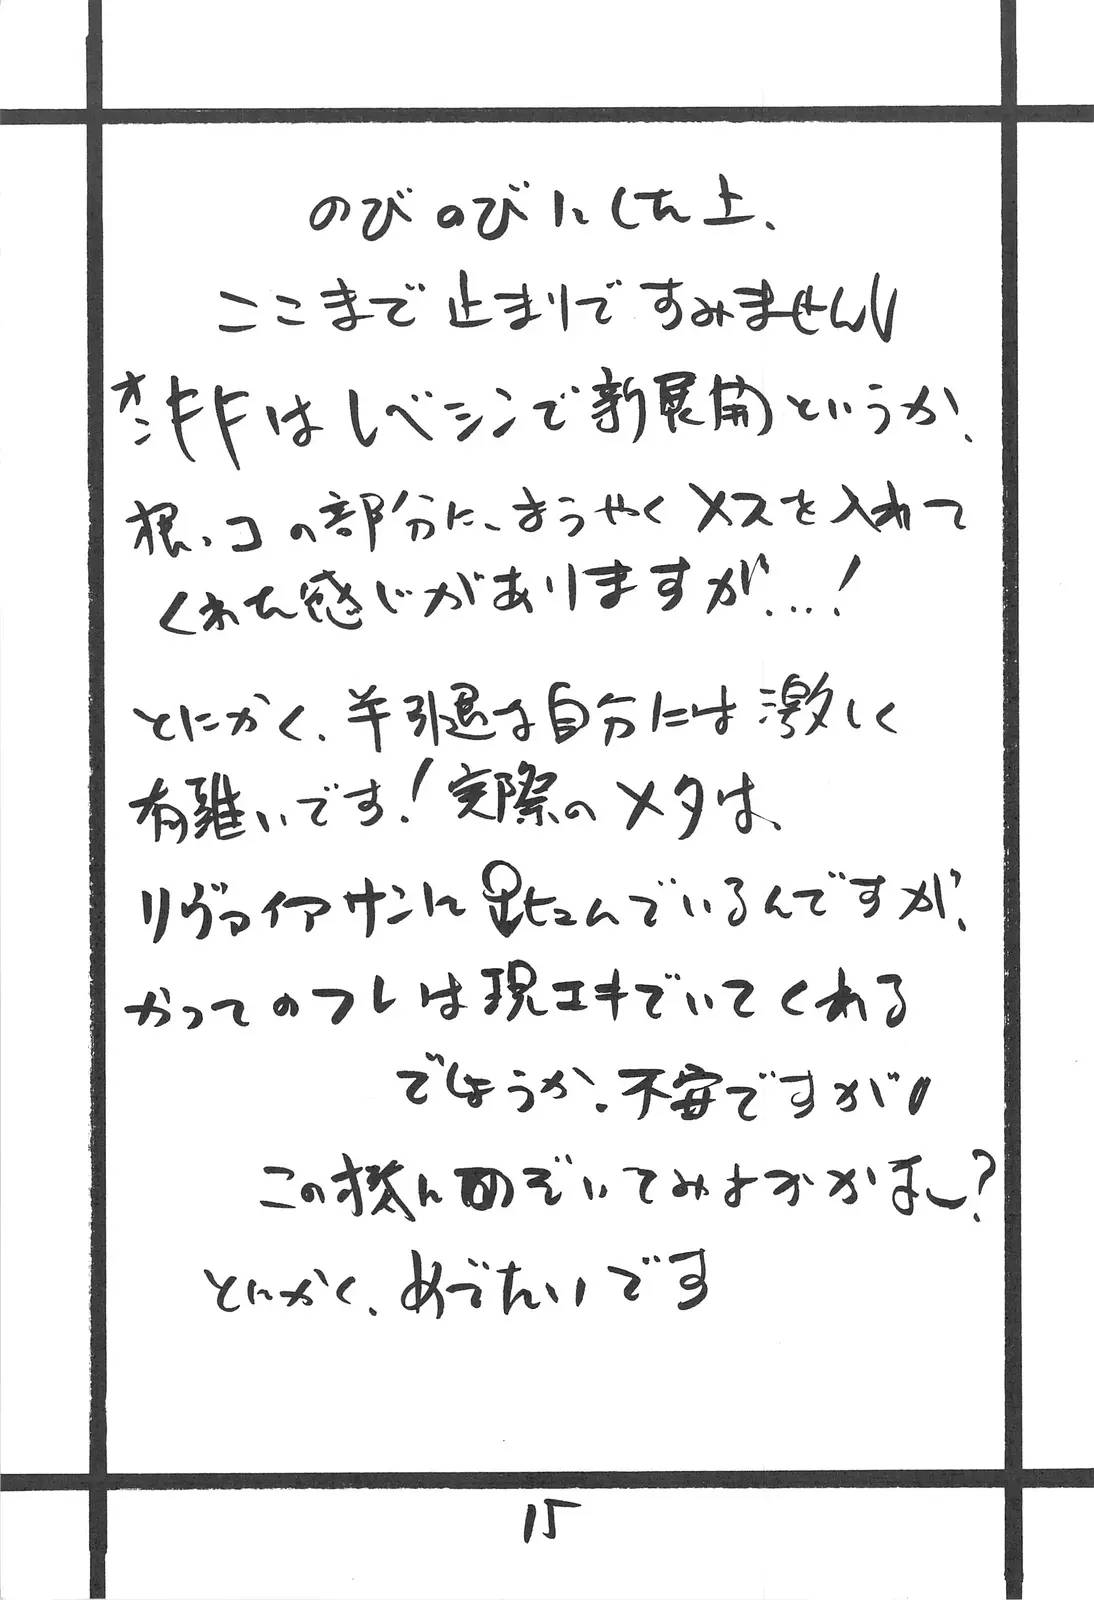 のびのびにした上、
ここまで止まりですみません
オンFFはレベシンで新展開というか、
根っコの部分に、ようやくメスを入れて
くれた感じがありますが…!
とにかく、半引退な自分には激しく
有難いです!実際のメタは、
リヴァイアサンに んでいるんですが、
かつてのフレは現エキでいてくれる
でしょうか、不安ですが
この機にのぞいてみようかかまー?
とにかく、めでたいです
15